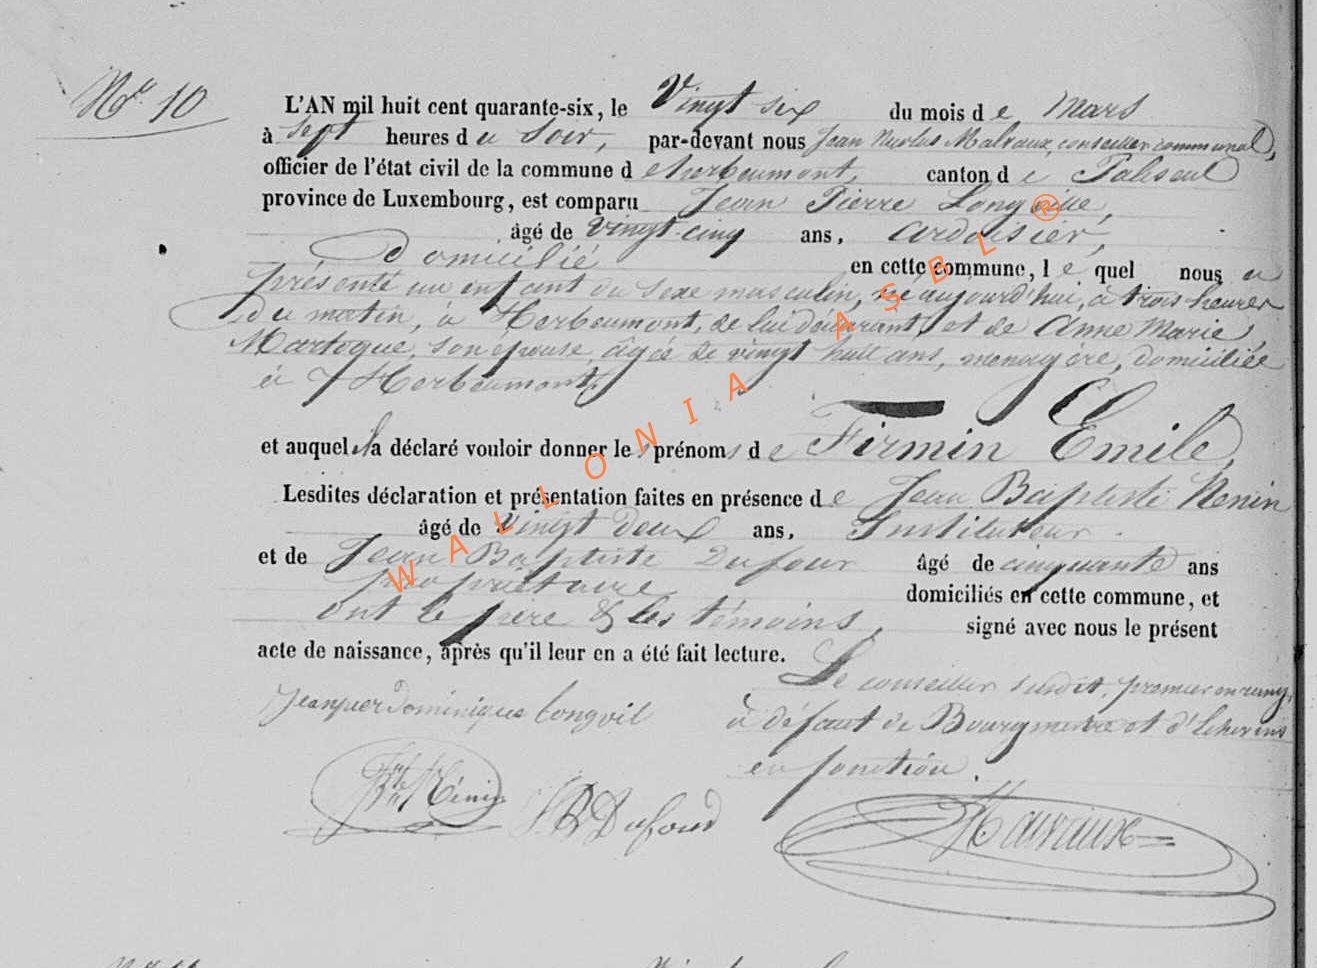 N° 10
L'AN mil huit cent quarante-six, le Vingt six du mois de Mars
à sept heures du Soir, par-devant nous Jean Nicolas Malvaux, conseiller communal,
officier de l'état civil de la commune d'herbeumont, canton de Paliseul
province de Luxembourg, est comparu Jean Pierre Longville,
âgé de vingt-cinq ans, ardoisier,
Domicilié en cette commune, lequel nous a
présenté un enfant du sexe masculin, né aujourd'hui, à trois heures
du matin, à Herbeumont, de lui déclarant, et de Anne Marie
Martoque, son épouse, âgée de vingt huit ans, menagère, domiciliée
à Herbeumont,
et auquel il a déclaré vouloir donner les prénoms de Firmin Emile,
Lesdites déclaration et présentation faites en présence de Jean Baptiste Nenin
âgé de vingt deux ans, Instituteur
et de Jean Baptiste Dufour âgé de cinquante ans
propriétaire domiciliés en cette commune, et
ont le père & les témoins, signé avec nous le présent
acte de naissance, après qu'il leur en a été fait lecture.
Le conseiller susdit, premier en rang,
à défaut de Bourgmestre et d'Echevins
en fonction.
dominique longvil
JB Dufour
Malvaux
WALLONIA ASBL ®